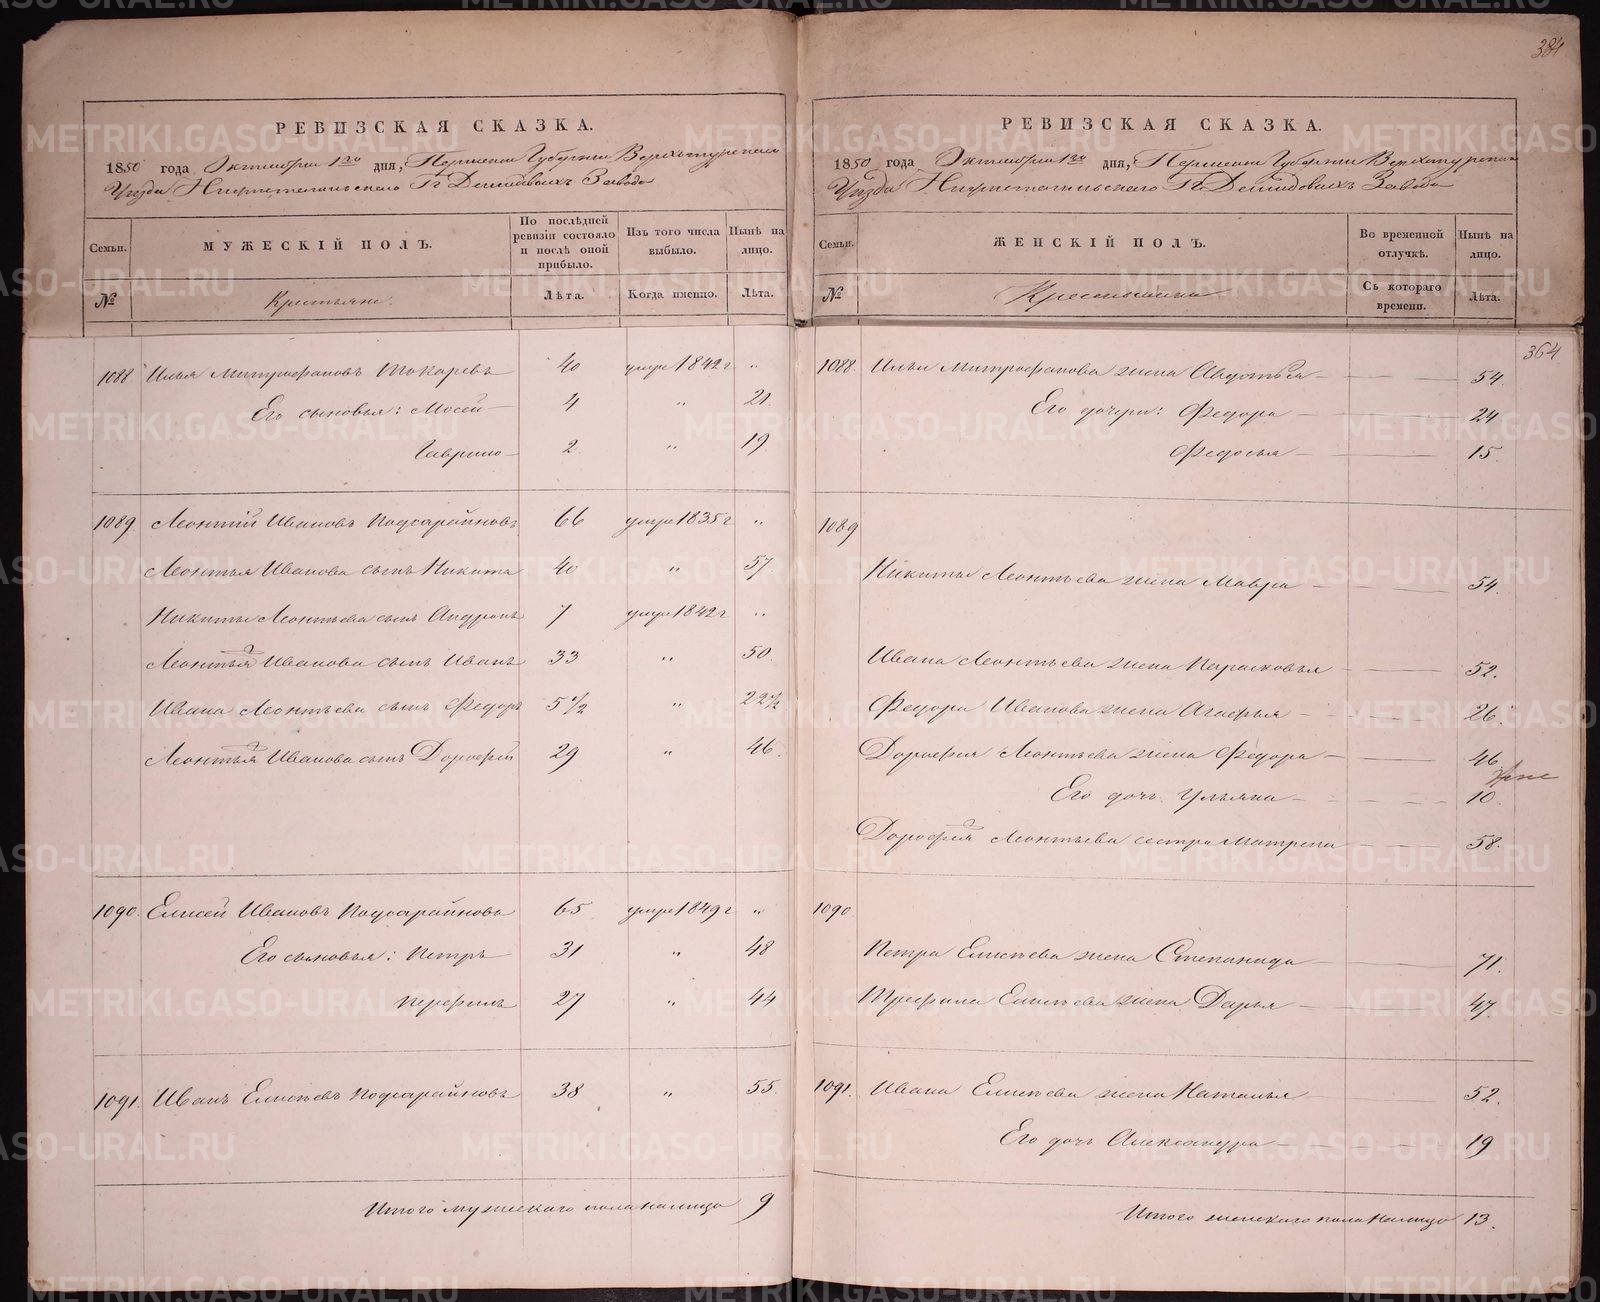 384
РЕВИЗСКАЯ СКАЗКА.
1850 года Октября 1го дня, Пермской Губернии Верхотурскаго
Уезда Нижнетагильскаго Гг Демидовыхъ Завода
Семьи.
МУЖЕСКІЙ ПОЛЪ.
По послѣдней ревизіи состояло и послѣ оной прибыло.
Изъ того числа выбыло.
Нынѣ на лицо.
№
Крестьяне.
Лѣта.
Когда именно.
Лѣта.
1088 Илья Митрофановъ Токаревъ 40 умре 1842 г "
Его сыновья: Мосей 4 " 21
Гаврило 2 " 19
1089. Леонтій Ивановъ Подсарайновъ 66 умре 1835 г "
Леонтья Иванова сынъ Никита 40 " 57
Никиты Леонтьева сынъ Андронъ 7 умре 1842 г "
Леонтья 2 Иванова сынъ Иванъ 33 " 50.
Ивана Леонтьева сынъ Федоръ 5 1/2 " 22 1/2
Леонтья 3 Иванова сынъ Дорофей 29 " 46.
1090. Елисей Ивановъ Подсарайновъ 65 умре 1849 г "
Его сыновья: Петръ 31 " 48
Перфилъ 27 " 44
1091. Иванъ Елисѣевъ Подсарайновъ 38 " 55.
Итого мужескаго пола налицо 9
РЕВИЗСКАЯ СКАЗКА.
1850 года Октября 1го дня, Пермской Губернии Верхотурскаго
Уезда Нижнетагильскаго Гг Демидовыхъ Завода
Семьи.
ЖЕНСКІЙ ПОЛЪ.
Во временной отлучкѣ.
Нынѣ на лицо.
№
Крестьянки
Съ котораго времени.
Лѣта.
364
1088. Ильи Митрофанова жена Авдотья 54.
Его дочери: Федора 24
Федосья 15.
1089
Никиты Леонтьева жена Мавра 54.
Ивана Леонтьева жена Парасковья 52.
Федора Иванова жена Агафья 26.
Дорофея Леонтьева жена Федора 46.
Его дочь Ульяна 10.
Дорофея Леонтьева сестра Матрена 58.
1090
Петра Елисѣева жена Степанида 71.
Перфила Елисѣева жена Дарья 47.
1091. Ивана Елисѣева жена Наталья 52.
Его дочь Александра 19
Итого женскаго пола налицо 13.
METRIKI.GASO-URAL.RU